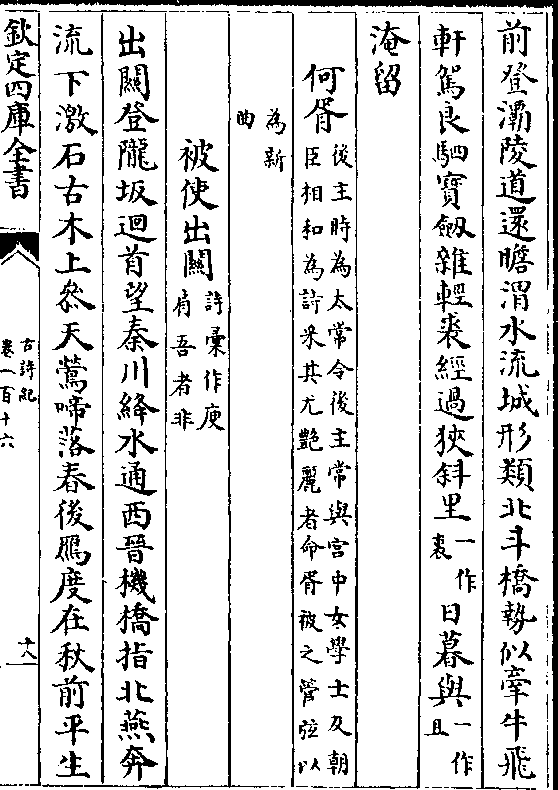 前登灞陵道還瞻渭水流城形類北斗橋勢似牽牛飛
軒駕良駟寶劔雜輕裘經過狹斜里一作裏日暮與一作且
淹留
何胥後主時為太常令後主常與宫中女學士及朝臣相和為詩采其尤艶麗者命胥被之管弦以
為新曲
被使出關詩彚作庾肩吾者非
出關登隴坂迴首望秦川絳水通西晉機橋指北燕奔
流下激石古木上叅天鶯啼落春後鴈度在秋前平生
欽定四庫全書
古詩紀
卷一百十六
十八